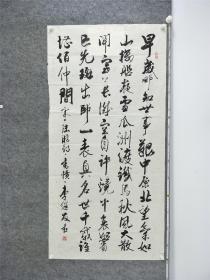 早歲那知世事艱中原北望氣如
山樓船夜雪瓜洲渡鐵馬秋風大散
關塞上長城空自許鏡中衰鬢
已先斑出師一表真名世千載誰
堪伯仲間 書憤 李友